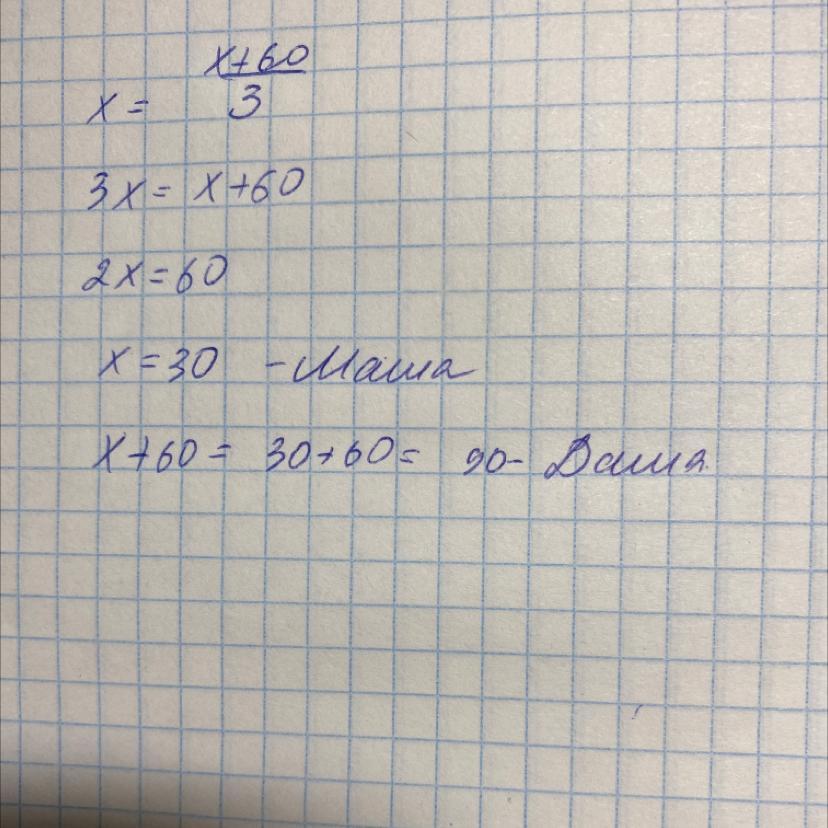 x = (x+60)/3
3x = x+60
2x = 60
x = 30 - Маша
x+60 = 30+60 = 90 - Даша